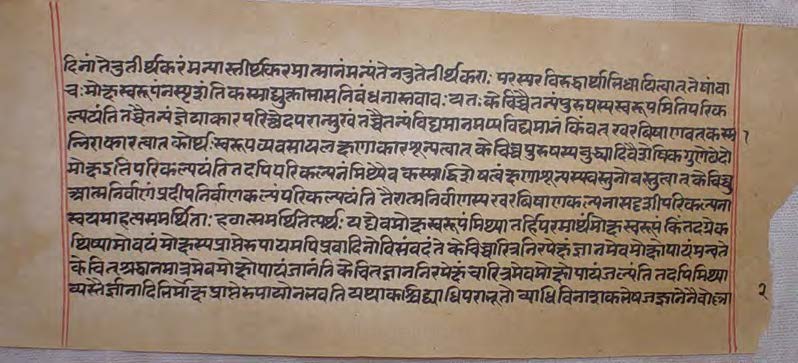 दिनां तेतु तीर्थकरंमन्यास्तीर्थकरमात्मानंमन्यंते नतु ते तीर्थकराः परस्परविरुद्धार्थाभिधायित्वात् तेषांवा
वः मोक्षस्वरूपं नस्पृशंति कस्माद्युक्त्याभासनिबंधनास्तवावः यतः केचिच्चैतन्यंपुरुषस्यस्वरूपमितिपरिक
ल्पयंति तच्चैतन्यंज्ञेयाकारपरिच्छेदपरान्मुखंतच्चैतन्येविद्यमानमप्यविद्यमानं किंवत खरविषाणवत कस्मा
न्निराकारत्वात कोर्थः स्वरूपव्यवसायलक्षणाकारशून्यत्वात केचिच्च पुरुषस्यबुद्ध्यादिवैशेषिकगुणोछेदो
मोक्षइतिपरिकल्पयंति तदपिपरिकल्पनंमिथ्यैव कस्माद्विशेषलक्षणशून्यस्यवस्तुनोवस्तुत्वात केचिच्चु
च्चात्मनिर्वाणंप्रदीपनिर्वाणकल्पंपरिकल्पयंति तैरात्मनिर्वाणस्यखरविषाणकल्पनासदृशीपरिकल्पना
स्वयमाहत्यसमर्थिताः हठात्समर्थितेत्यर्थः यद्येवंमोक्षस्वरूपंमिथ्यातर्हिपरमार्थंमोक्षस्वरूपं किंतदग्रेक
थयिष्यामोवयंमोक्षस्यप्राप्तेरुपायमपिप्रवादिनोविसंवदंते केचिच्चारित्रनिरपेक्षंज्ञानमेवमोक्षोपायंमन्वते
केचित श्रद्धानमात्रमेवमोक्षोपायंजानंति केचित ज्ञाननिरपेक्षंचारित्रमेवमोक्षोपायंजल्पंति तदपिमिथ्या
व्यस्तैर्ज्ञानादिभिर्मोक्षप्राप्तेरुपायोनभवति यथाकश्चिद्व्याधिपराभूतो व्याधिविनाशकभेषजज्ञानेनैवोल्ला
२